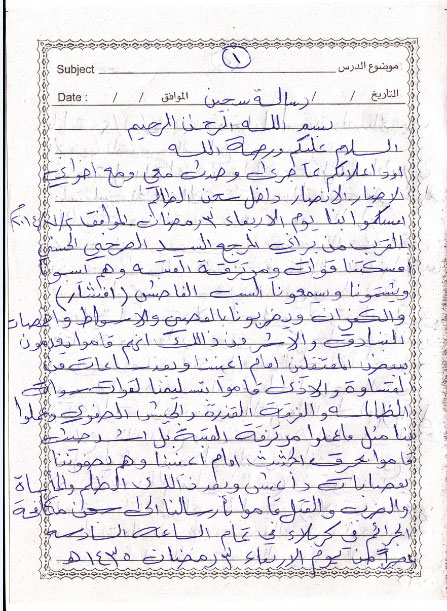 ١
Subject موضوع الدرس
Date : / / الموافق / / التاريخ
رسالة سجين
بسم الله الرحمن الرحيم
السلام عليكم ورحمة الله
اود اعلامكم بما جرى وحدث معي ومع اخواني
الاخيار الانصار داخل سجن الظالم
امسكوا اننا يوم الاربعاء ٣ رمضان الموافق
بالقرب من براني المرجع السيد الصرخي الحسني
امسكتنا قوات ومرتزقة الفتنة وهم يسبونا
ويشتمونا ويسمعونا السب الفاحش (افشار)
والكفرات ويضربونا بالعصي والاسواط واخمصات
البنادق والاشد من ذلك انهم قاموا يعدمون
بعض المعتقلين امام اعيننا وبعد ساعات من
القساوة والاذى قاموا بتسليمنا لقوات سوات
الظالمة والفرقة القذرة والجيش الصفوي وعملوا
بنا مثل ما عملوا مرتزقة الفتنة بل اشد حيث
قاموا بحرق الجثث امام اعيننا وهم يصورونا
كعصابات داعش وبعد ذلك الظلم والمأساة
والضرب والقتل قاموا بارسالنا الى سجن مكافحة
الجرائم في كربلاء في تمام الساعة السادسة
عصراً من يوم الاربعاء ٣ رمضان ١٤٣٥ هـ